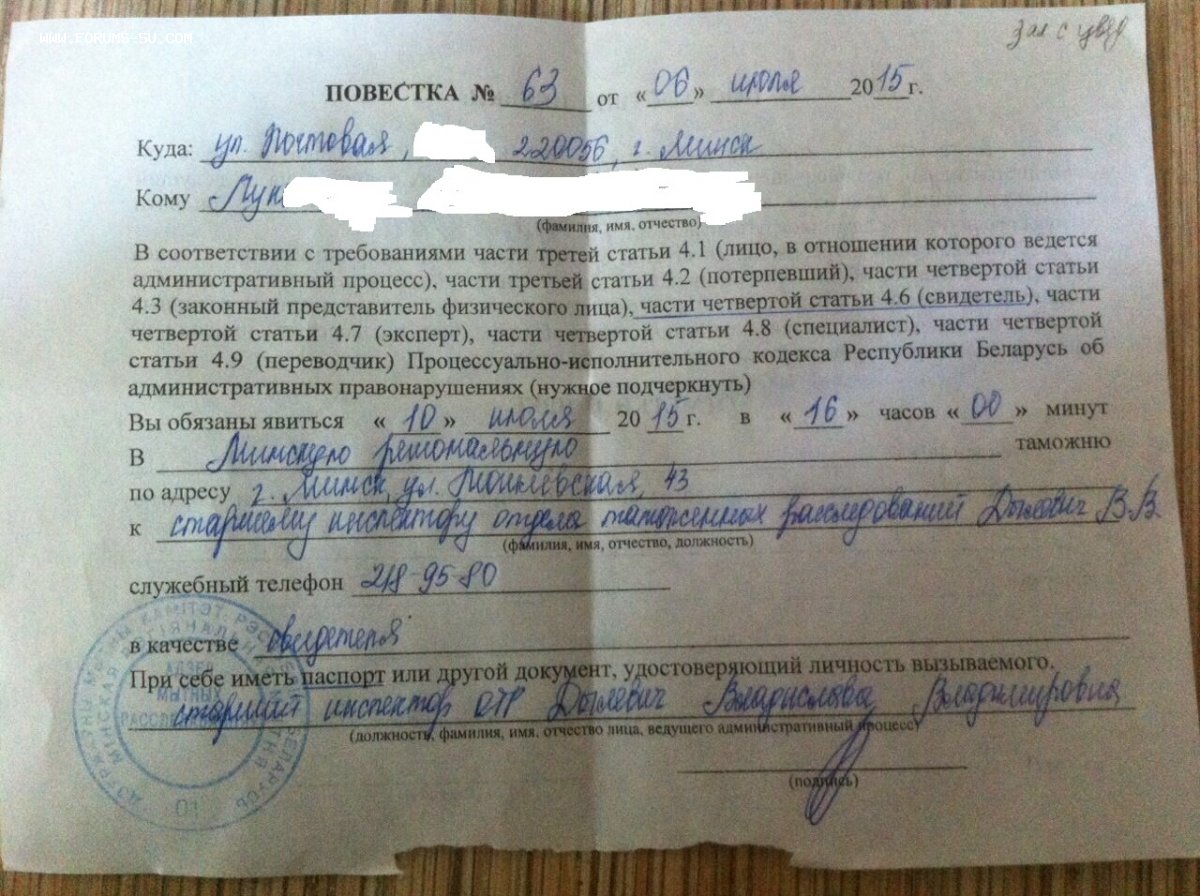 WWW.FORUMS-SU.COM
ПОВЕСТКА № 63 от «06» июля 2015г.
Куда: ул. Почтовая, 220056, г. Минск
Кому Лук
(фамилия, имя, отчество)
В соответствии с требованиями части третей статьи 4.1 (лицо, в отношении которого ведется
административный процесс), части третьей статьи 4.2 (потерпевший), части четвертой статьи
4.3 (законный представитель физического лица), части четвертой статьи 4.6 (свидетель), части
четвертой статьи 4.7 (эксперт), части четвертой статьи 4.8 (специалист), части четвертой
статьи 4.9 (переводчик) Процессуально-исполнительного кодекса Республики Беларусь об
административных правонарушениях (нужное подчеркнуть)
Вы обязаны явиться «10» июля 2015г. в «16» часов «00» минут
В Минскую региональную таможню
по адресу г. Минск, ул. Могилевская, 43
к старшему инспектору отдела таможенных расследований В.В.
(фамилия, имя, отчество, должность)
служебный телефон 218-95-80
в качестве свидетеля
При себе иметь паспорт или другой документ, удостоверяющий личность вызываемого.
старший инспектор ОТР Владислава Владимировна
(должность, фамилия, имя, отчество лица, ведущего административный процесс)
(подпись)
АДЗЕЛ
МЫТНЫХ